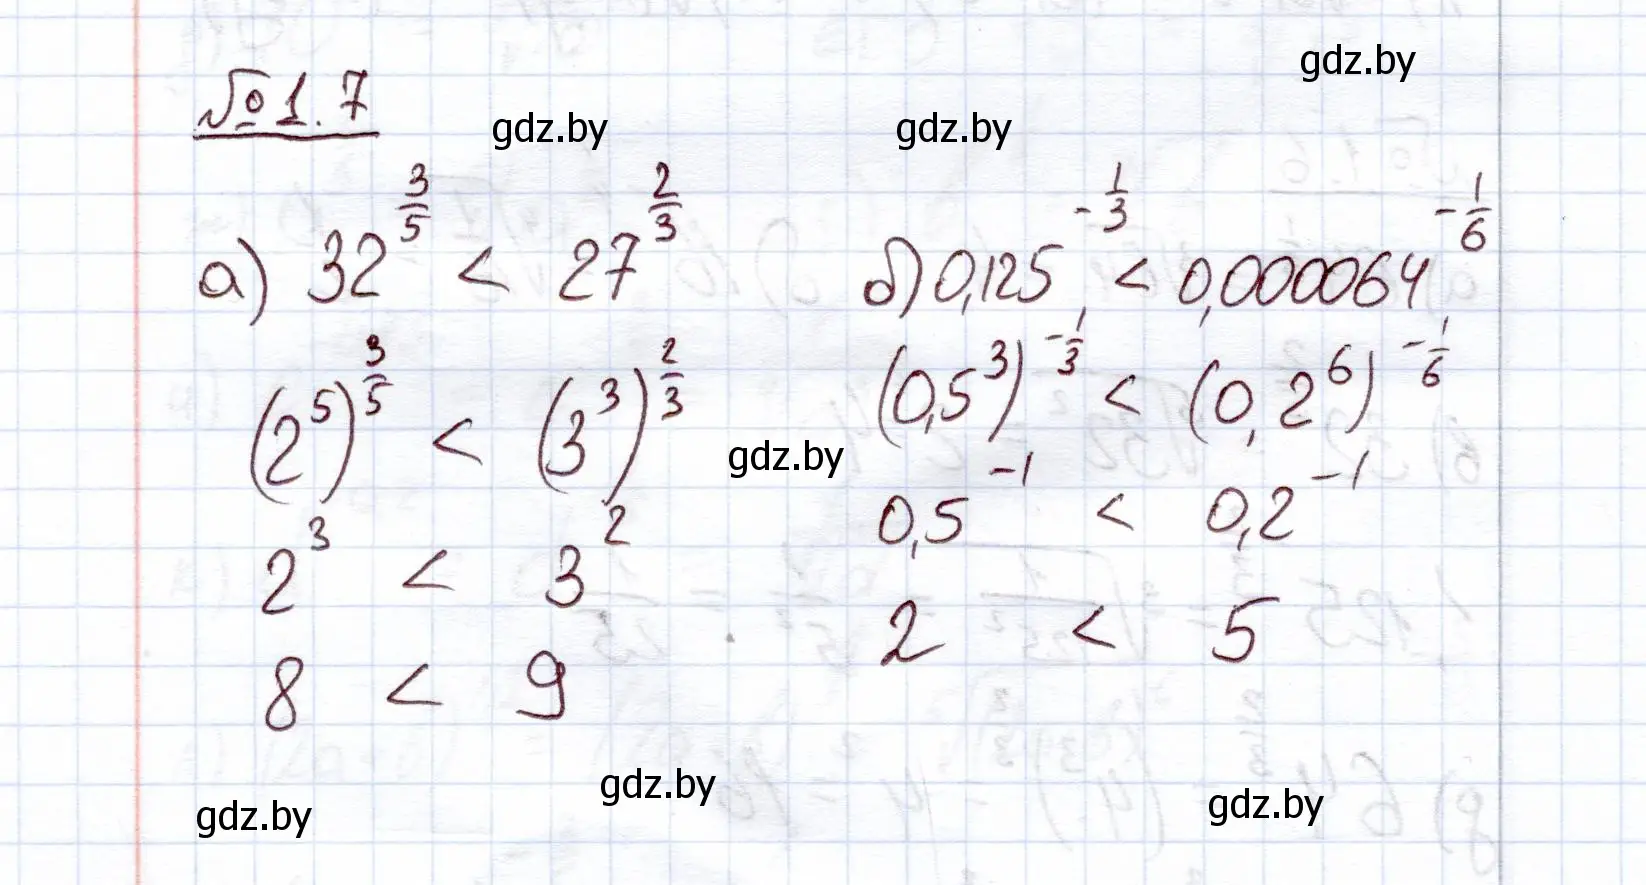 gdz.by
№ 1.7
gdz.by gdz.by
а) 32^(3/5) < 27^(2/3) б) 0,125^(-1/3) < 0,000064^(-1/6)
(2^5)^(3/5) < (3^3)^(2/3) (0,5^3)^(-1/3) < (0,2^6)^(-1/6)
gdz.by
2^3 < 3^2 0,5^(-1) < 0,2^(-1)
8 < 9 2 < 5
gdz.by gdz.by gdz.by